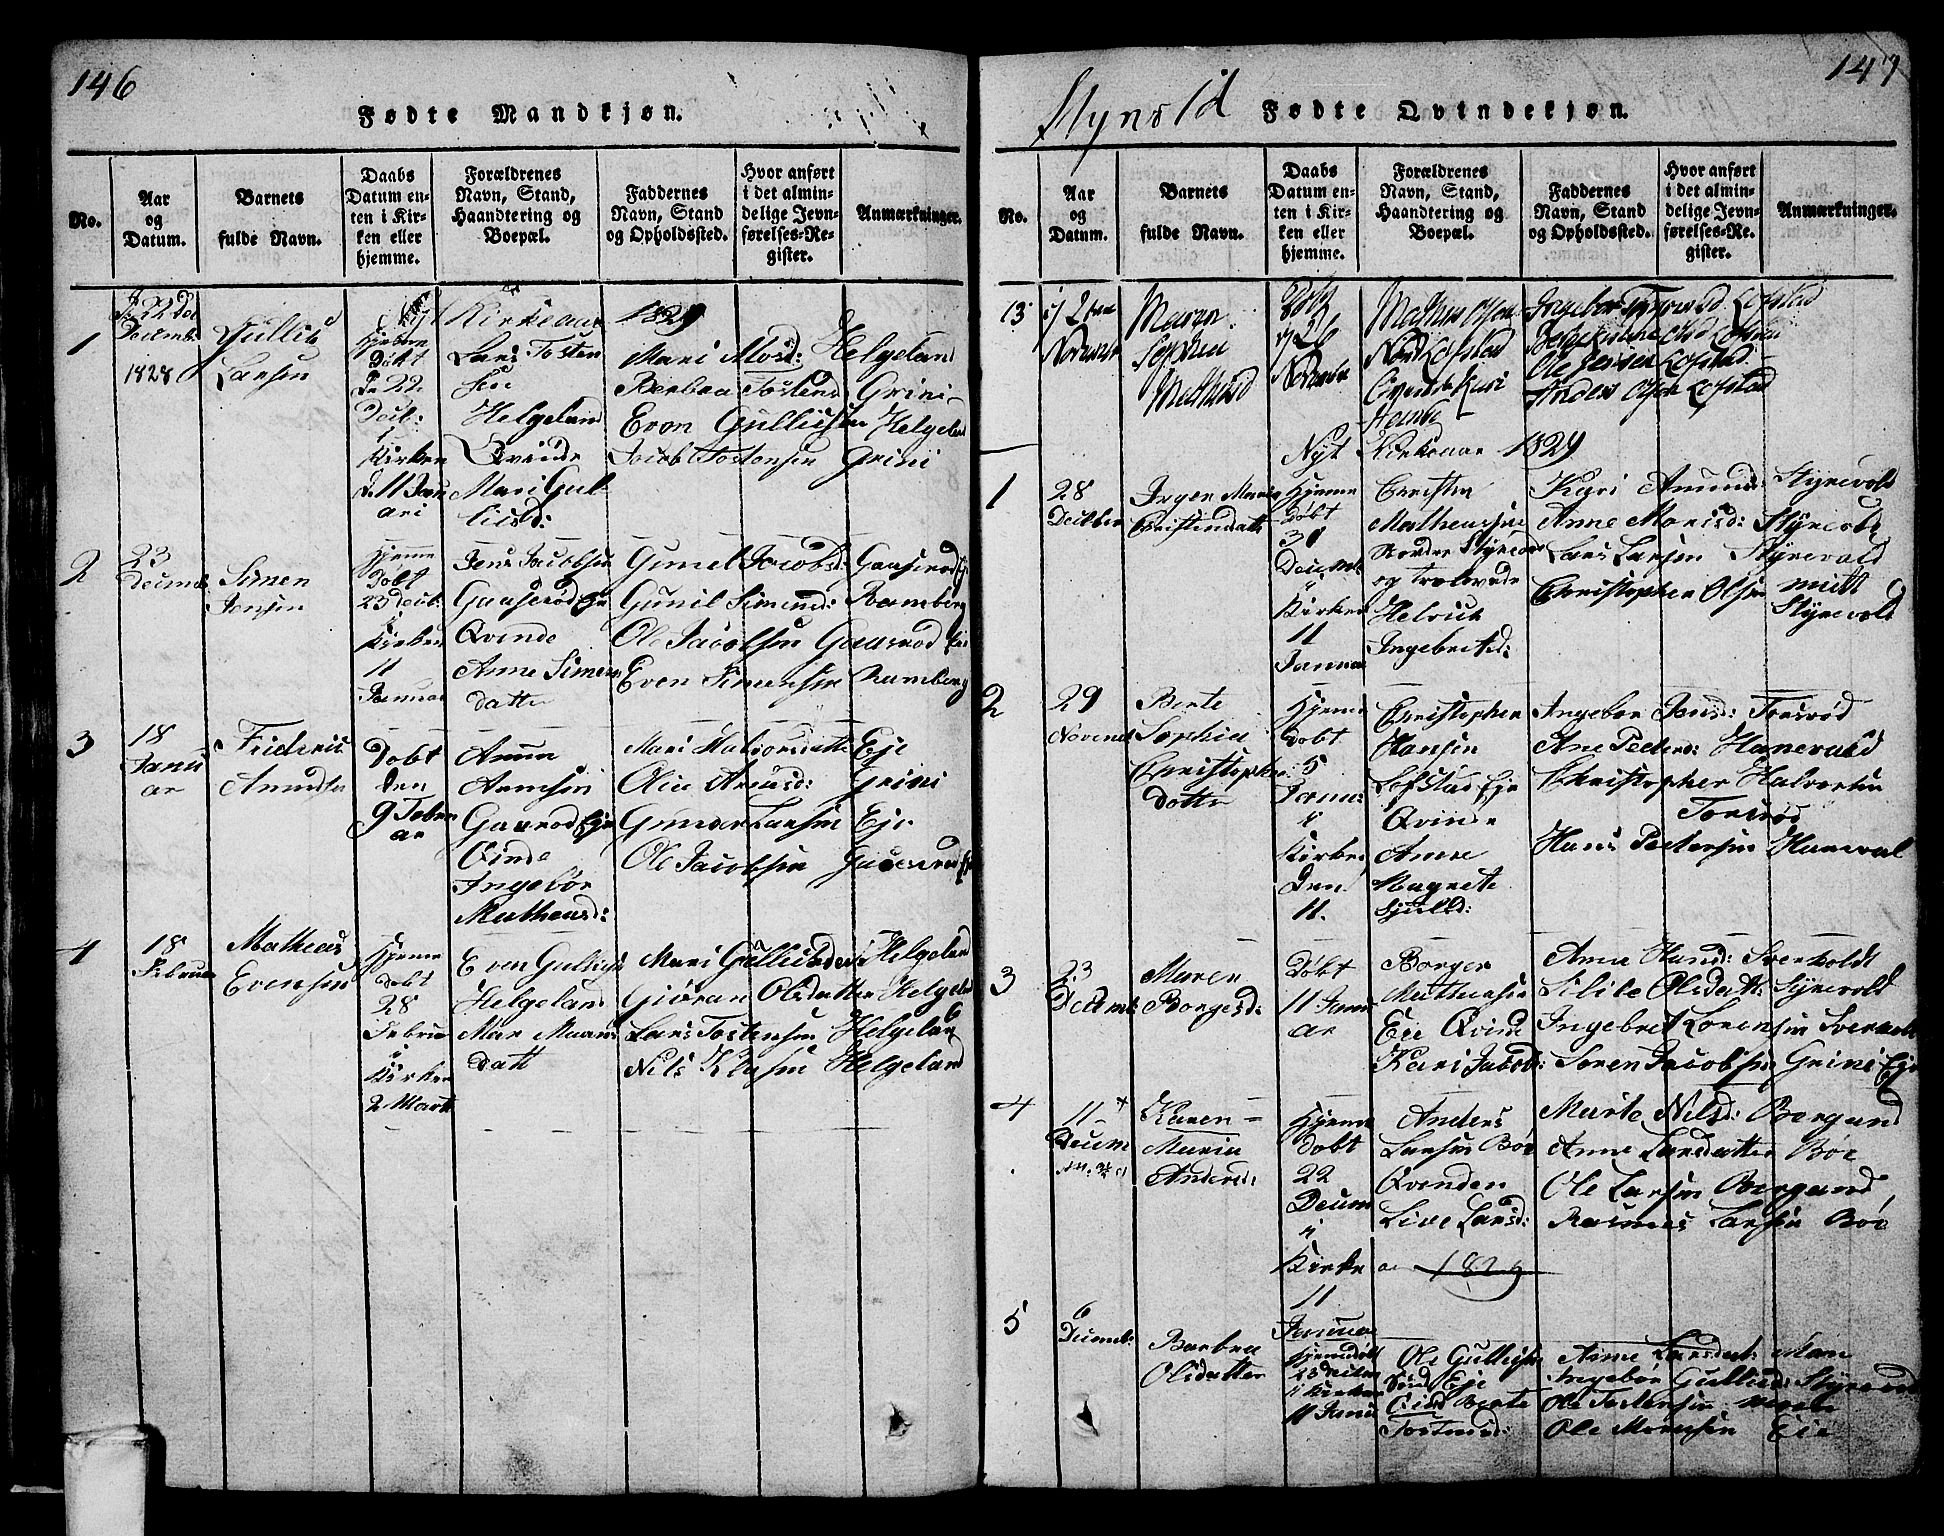 146
Fødte Mandkjøn.
No.
Aar
og
Datum.
Barnets
fulde Navn.
Daabs
Datum en-
ten i Kir-
ken eller
hjemme.
Forældrenes
Navn, Stand,
Haandtering og
Boepæl.
Faddernes
Navn, Stand
og Opholdssted.
Hvor anført
i det almin-
delige Jevn-
førelses-Re-
gister.
Anmærkninger.
Nyt Kirkeaar 1829
1
22 de
Decemb
1828
Gullik
Larsen
Hjemme
Døbt
22
Decb:
i
Kirken
d. 11 Janu
ari
Lars Tosten
sen
Helgeland
Qvinde
Mari Gul
licsd:
Mari Mosd: Helgeland
Barbaa Tostensd Grini
Even Gullicsen Helgeland
Jacob Tostensen Grini
2
23
Decemb
Simen
Jensen
Hjemme
Døbt
23 Decb:
i
Kirken
11
Januar
Jens Jacobsen
Gaaserød Eje
Qvinde
Anne Simens
datter
Gunel Jacobsd: Gaaserød Eje
Gunil Simensd: Ramberg
Ole Jacobsen Gaaserød Eje
Even Simensen Ramberg
3
18
Janu
ar
Frideric
Amundsen
Døbt
den
9 Febru
ar
Amun
Arnesen
Gaaserød Eje
Qvinde
Ingebør
Matheusd:
Mari Halvorsdatter Eje
Olia Arnesd: Grini
Gunder Larsen Eje
Ole Jacobsen Gaaserød Eje
4
18
Februar
Mathias
Evensen
Hjemme
døbt
28
Februar
i
Kirken
2 Marts
Even Gullicsen
Helgeland
Mar Maans
datt
Mari Gullicsdatter Helgeland
Giøran Olsdatter Helgeland
Lars Tostensen Helgeland
Nils Klasen Helgeland
147
Styrvold
Fødte Qvindekjøn.
No.
Aar
og
Datum.
Barnets
fulde Navn.
Daabs
Datum en-
ten i Kir-
ken eller
hjemme.
Forældrenes
Navn, Stand,
Haandtering og
Boepæl.
Faddernes
Navn, Stand
og Opholdssted.
Hvor anført
i det almin-
delige Jevn-
førelses-Re-
gister.
Anmærkninger.
13
2
Novemb
Maren
Sophia
Mathiasd
Døbt
26
Novemb
Mathias Olsen
Nord Lofstad
Kari
Ingebor Lofstad
Olsd Lofstad
Ole Jensen Lofstad
Anders Olsen Lofstad
Nyt Kirkeaar 1829
1
28
Decbr
Inger Maria
Christensdatt
Hjemme
Døbt
30
Decemb
i
Kirken
11
Januar
Christen
Matheussen
Styrevold
og
Helvig
Ingebretsd:
Kari Amunds: Styrevold
Anne Monsd: Styrevold
Lars Larsen Styrevold
Christopher Olsen mitt
Styrevold
2
29
Novemb
Berte
Sophia
Christopher
datter
Hjemme
døbt
5
Janu:
i
Kirken
den
11.
Christopher
Hansen
Lofstad Eje
Qvinde
Anne
Magrete
Sjulsd:
Ingebor Jensd: Torsrød
Ane Pedersd: Hanevold
Christopher Halvorsen
Torsrød
Hans Pedersen Hanevold
3
23
Decemb
Maren
Borgesd:
Døbt
11 Janu
ar
Borger
Mathiesen
Eje Qvinde
Kari Jacob:
Anne Hansd: Svenholdt
Silile Olsdatt: Styrevold
Ingebret Lorensen
Soren Jacobsen Grini Eje
4
11
Decem
Karen
Maria
Andersd:
Hjemme
døbt
22
Decem
i
Kirke
11
Januar
Anders
Larsen Bøe
Qvinden
Live Larsd:
Marte Nilsd: Borgand
Anne Larsdatter Bøe
Ole Larsen Borgand
Rasmus Larsen Bøe
1829
5
6
Decemb:
Barbra
Olsdatter
Hjemdøbt
23 Decem
i Kirken
11 Janu
Ole Gullicsen
Eje
Qind Berte
Tostensd:
Anne Larsdat:
Ingebør Gullicsd: Styrevold
Ole Tostensen
Ole Monsen Eie